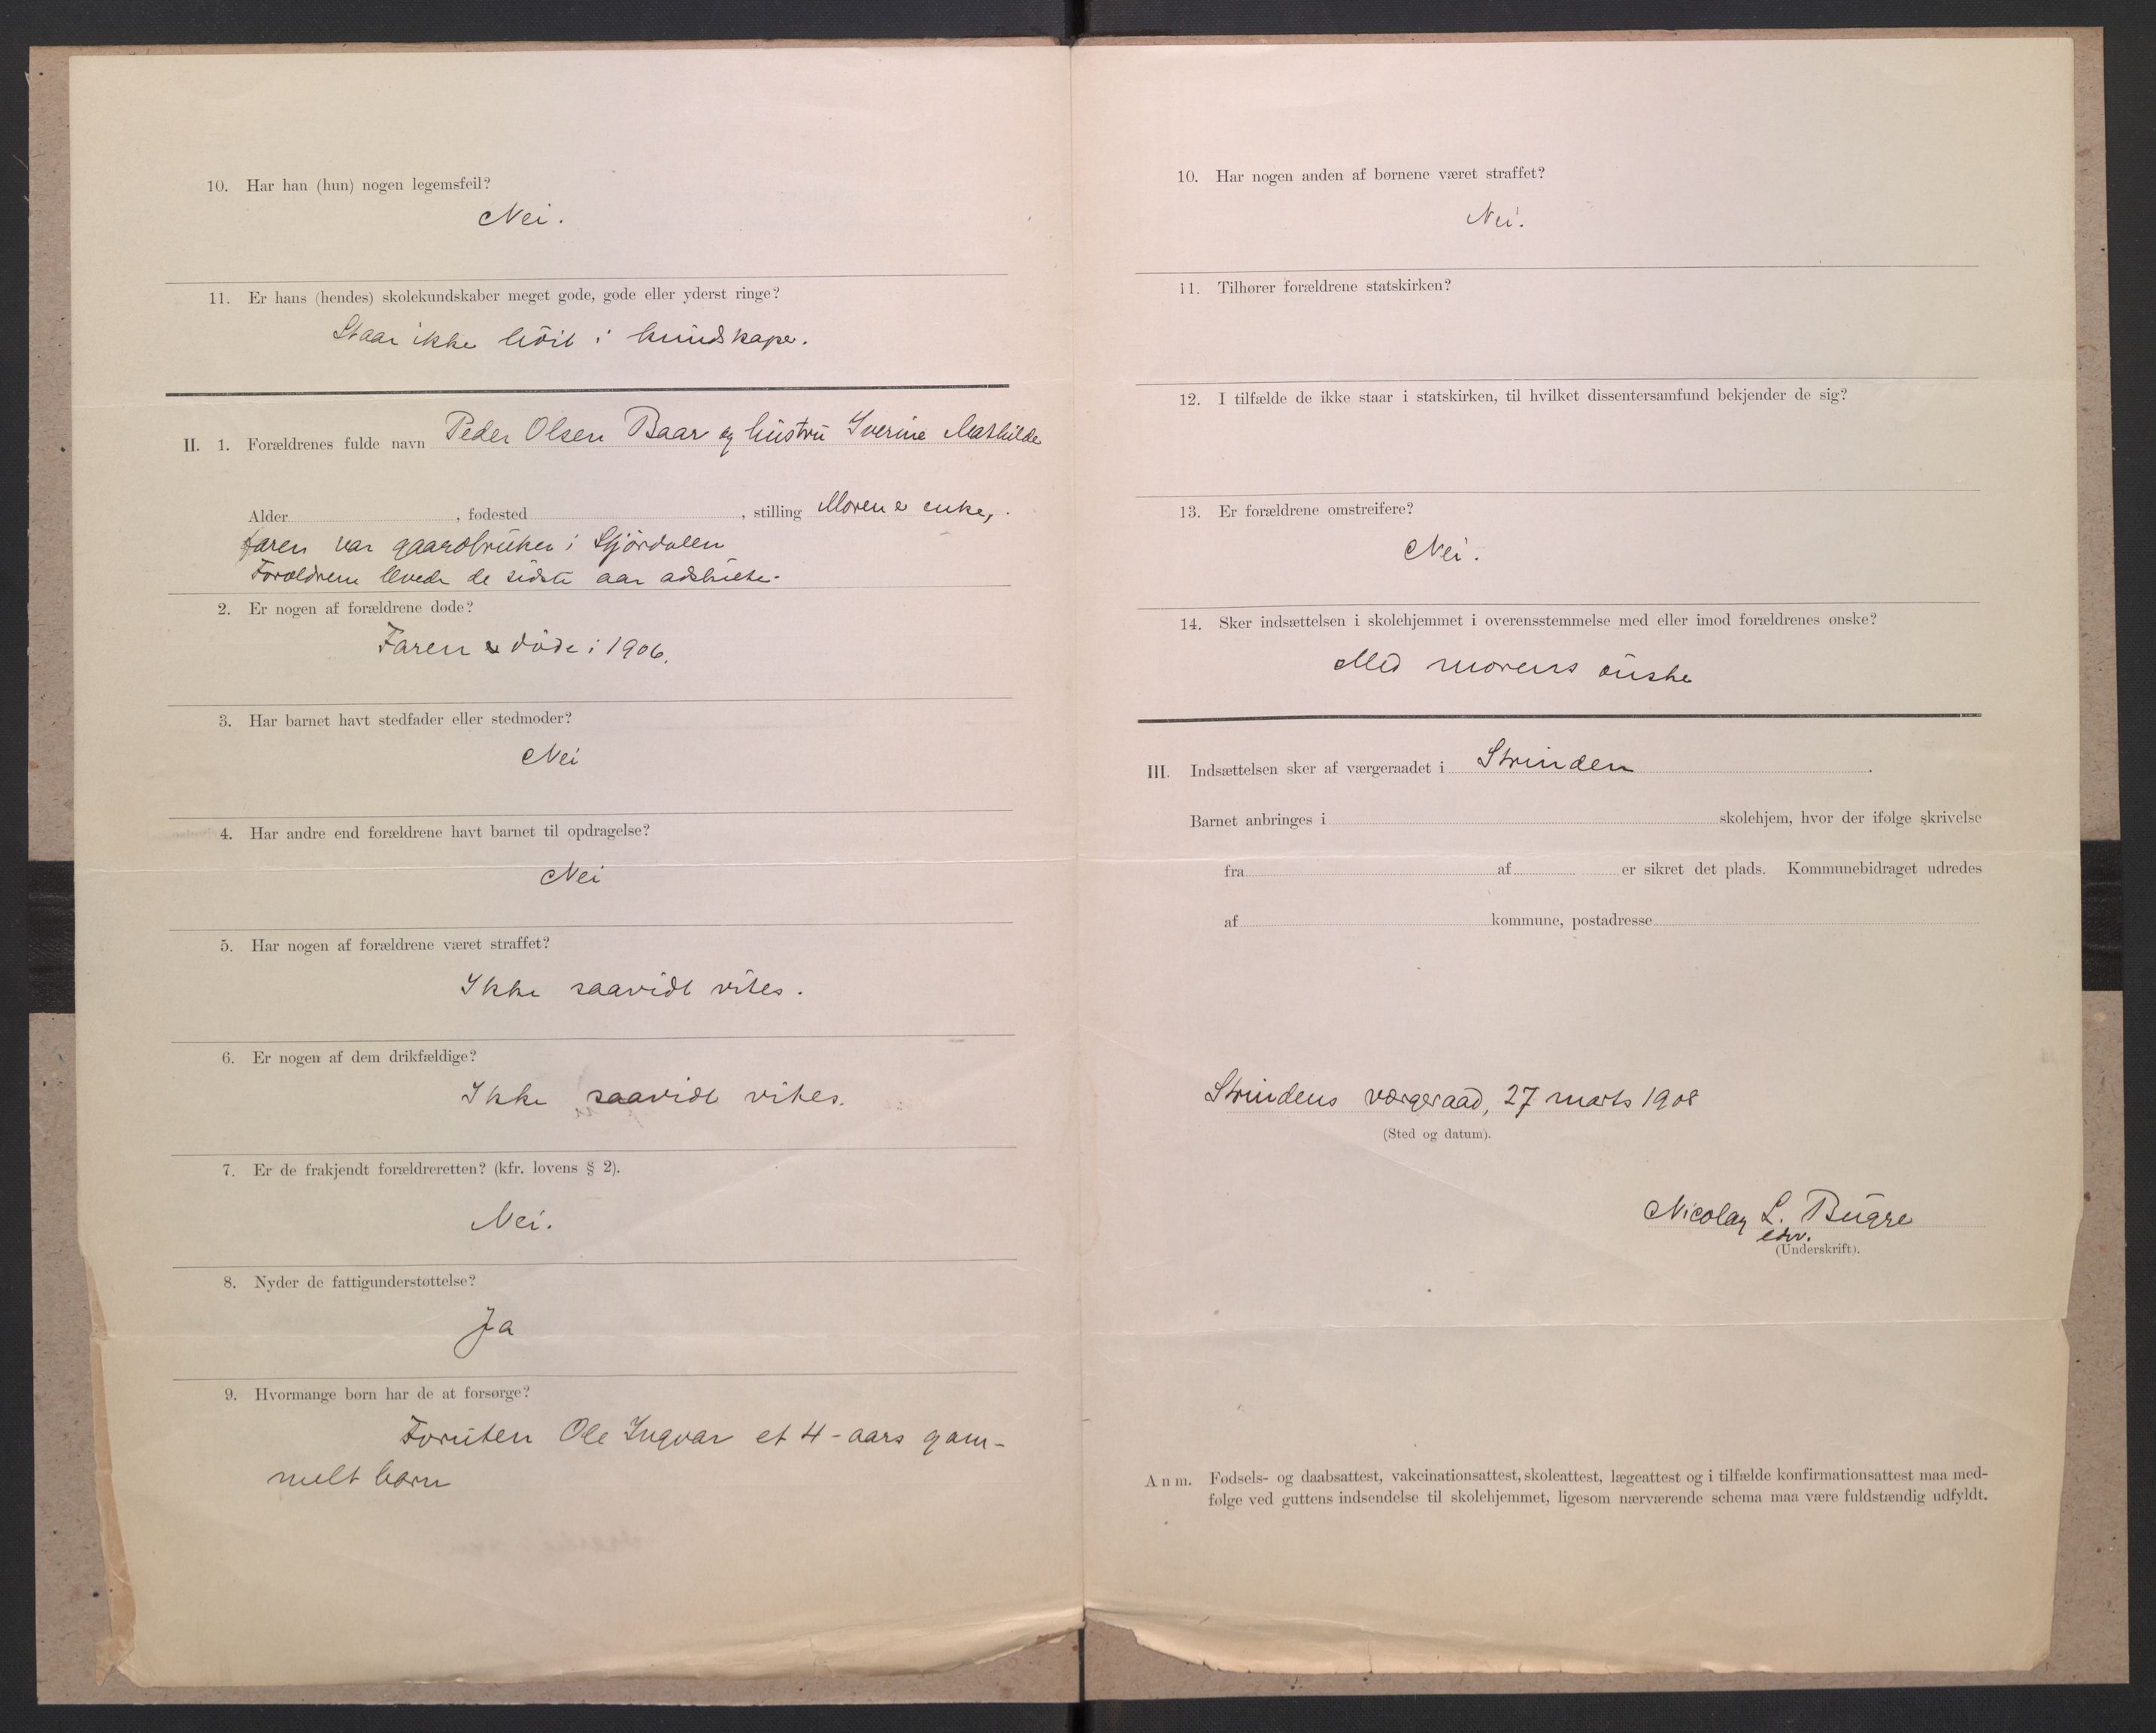 10. Har han (hun) nogen legemsfeil?
Nei.
11. Er hans (hendes) skolekundskaber meget gode, gode eller yderst ringe?
Staar ikke høit i kundskape.
II. 1. Forældrenes fulde navn Peder Olsen Baar og hustru Iverine Mathilde
Alder , fødested , stilling Moren er enke,
faren var gaardbruker i Stjørdalen
Forældrene levede de sidste aar adskilte.
2. Er nogen af forældrene døde?
Faren døde i 1906.
3. Har barnet havt stedfader eller stedmoder?
Nei
4. Har andre end forældrene havt barnet til opdragelse?
Nei
5. Har nogen af forældrene været straffet?
Ikke saavidt vites.
6. Er nogen af dem drikfældige?
Ikke saavidt vites.
7. Er de frakjendt forældreretten? (kfr. lovens § 2).
Nei.
8. Nyder de fattigunderstøttelse?
Ja
9. Hvormange børn har de at forsørge?
Foruten Ole Ingvar et 4-aars gam-
melt barn
10. Har nogen anden af børnene været straffet?
Nei.
11. Tilhører forældrene statskirken?
12. I tilfælde de ikke staar i statskirken, til hvilket dissentersamfund bekjender de sig?
13. Er forældrene omstreifere?
Nei.
14. Sker indsættelsen i skolehjemmet i overensstemmelse med eller imod forældrenes ønske?
Med morens ønske
III. Indsættelsen sker af værgeraadet i Strinden .
Barnet anbringes i skolehjem, hvor der ifølge skrivelse
fra af er sikret det plads. Kommunebidraget udredes
af kommune, postadresse
Strindens værgeraad, 27 marts 1908
(Sted og datum).
Nicolay L. Bugge
(Underskrift).
Anm. Fødsels- og daabsattest, vakcinationsattest, skoleattest, lægeattest og i tilfælde konfirmationsattest maa med-
følge ved guttens indsendelse til skolehjemmet, ligesom nærværende schema maa være fuldstændig udfyldt.